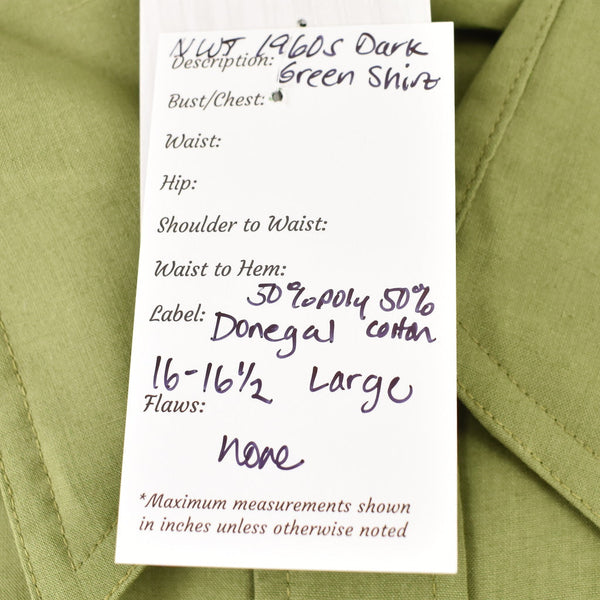 NWT 1960s Dark
Description: Green Shirt
Bust/Chest:
Waist:
Hip:
Shoulder to Waist:
Waist to Hem:
50% poly 50%
Label: Donegal cotton
16-16½ Large
Flaws:
none
*Maximum measurements shown
in inches unless otherwise noted